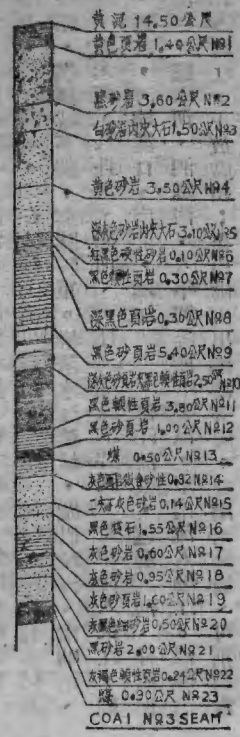 黄泥 14.50公尺
黄色頁岩 1.40公尺 №1
黑砂岩 3.60公尺 №2
白砂岩内灰大石 1.50公尺 №3
黄色砂岩 3.50公尺 №4
灰色砂岩内灰大石 3.10公尺 №5
色頓性砂岩 0.10公尺 №6
黑色頓性頁岩 0.30公尺 №7
深黑色頁岩 0.30公尺 №8
黑色砂頁岩 5.40公尺 №9
灰色砂頁岩 黑色頓性頁岩 2.50公尺 №10
黑色頓性頁岩 3.80公尺 №11
黑色砂頁岩 1.00公尺 №12
煤 0.50公尺 №13
灰色頁岩 砂性 0.82 №14
灰色砂岩 0.14公尺 №15
黑色 石 1.55公尺 №16
灰色砂岩 0.60公尺 №17
灰色砂岩 0.95公尺 №18
灰色砂頁岩 1.60公尺 №19
灰黑色細砂岩 0.50公尺 №20
黑砂岩 2.00公尺 №21
灰褐色頓性頁岩 0.24公尺 №22
煤 0.90公尺 №23
COAL №3 SEAM